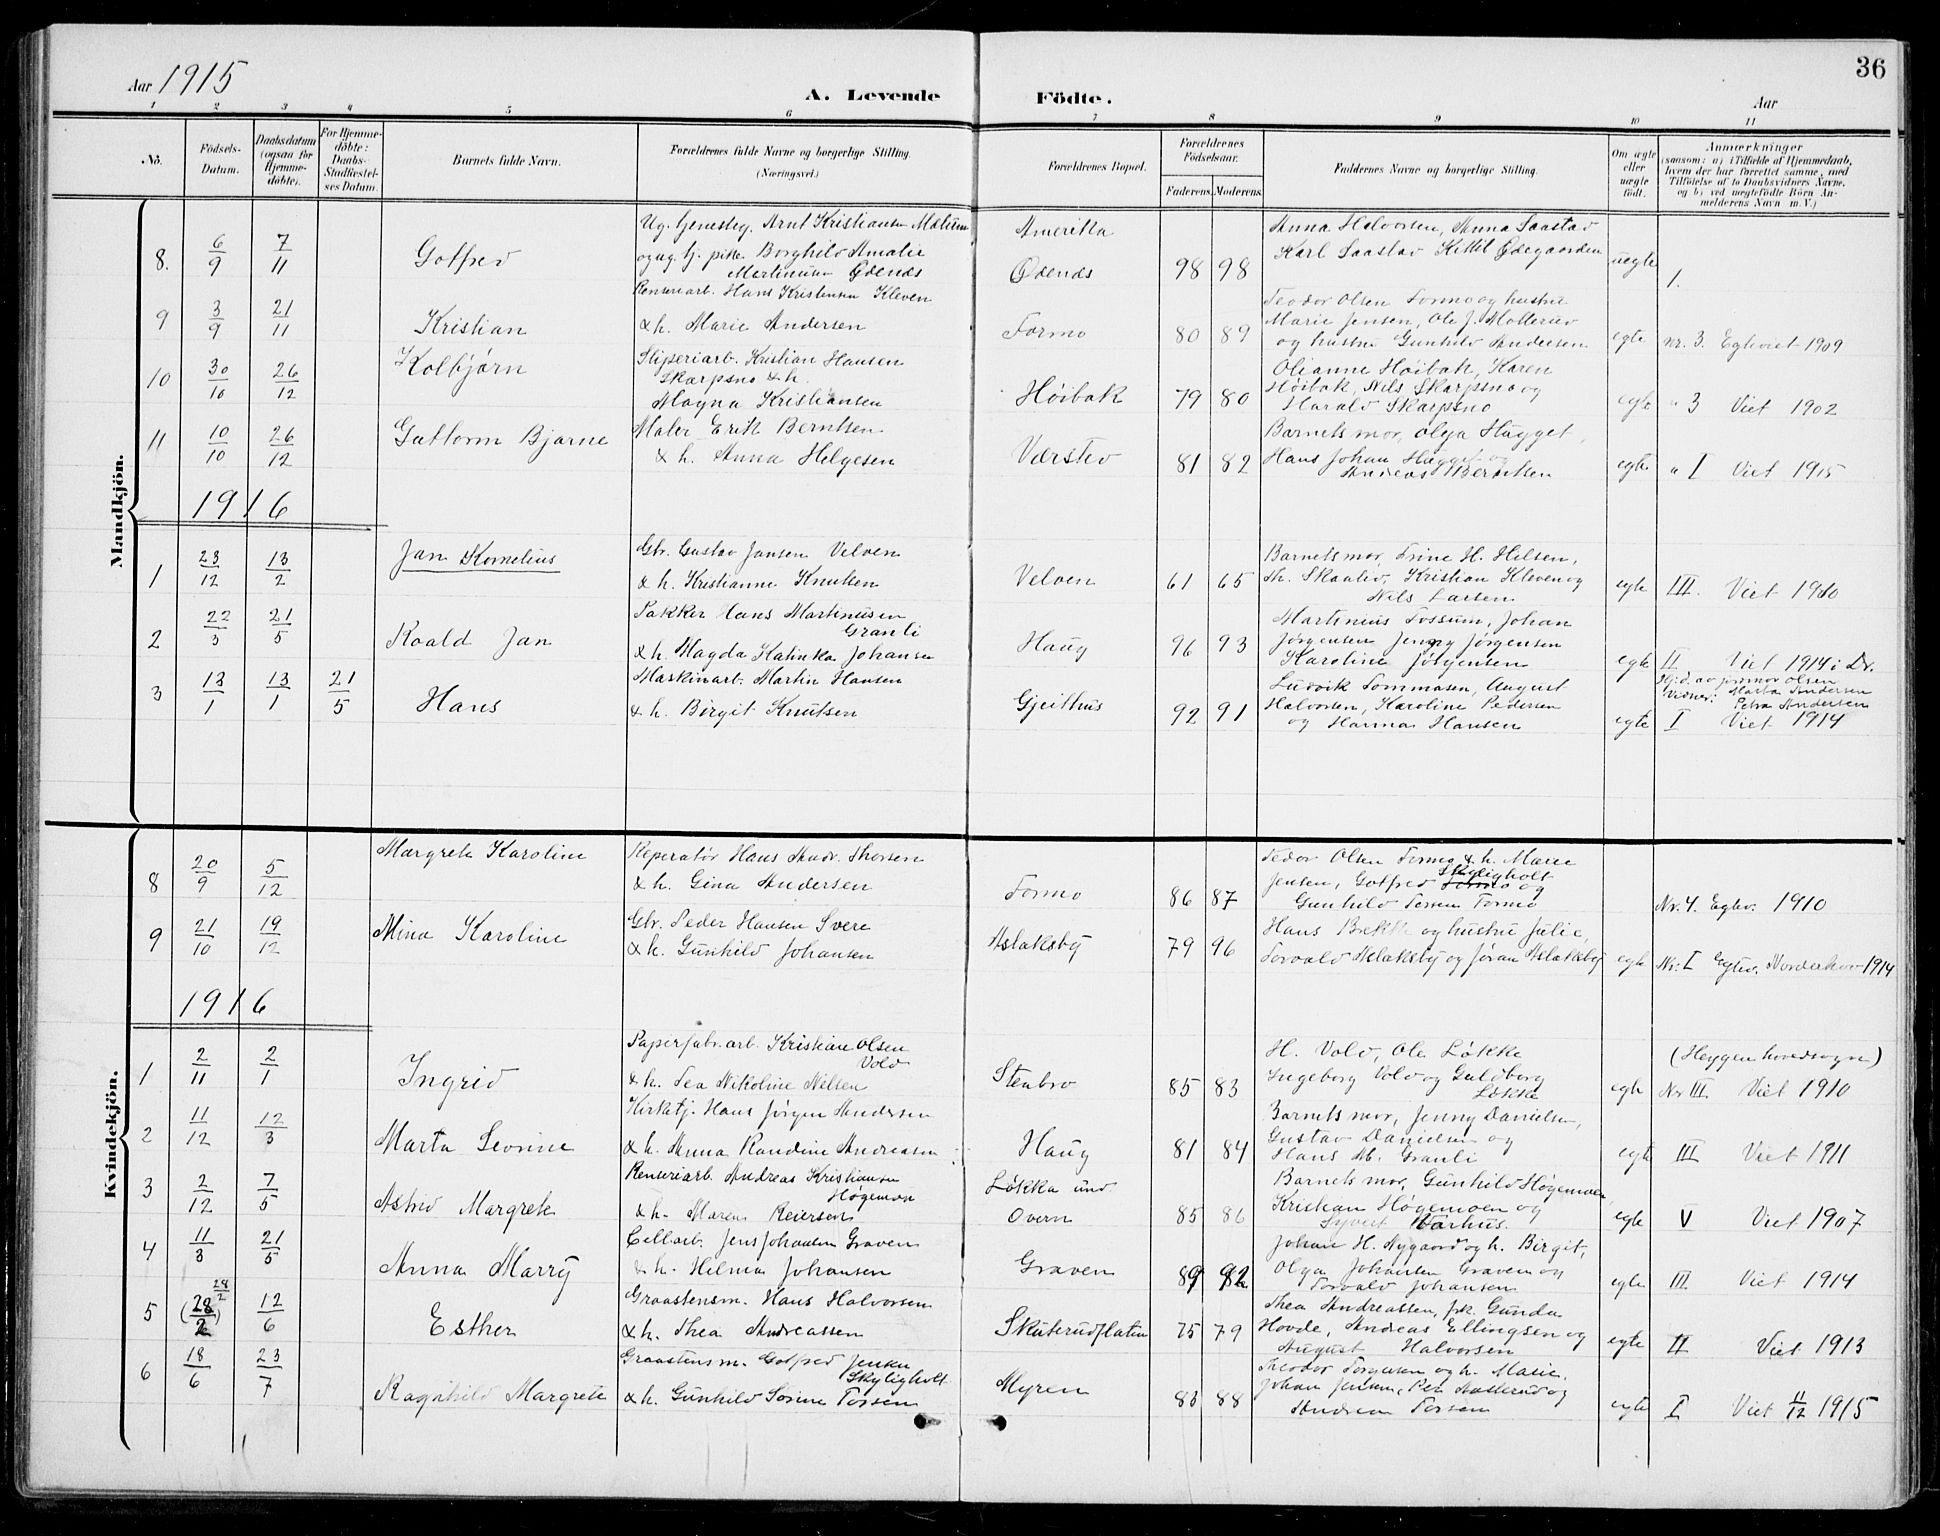 36
Aar 1915
A. Levende Födte.
Aar
1 2 3 4 5 6 7 8 9 10 11
No.
Födsels-Datum.
Daabsdatum (ogsaa for Hjemme-döbte).
For Hjemme-döbte: Daabs-Stadfæstel-ses Datum.
Barnets fulde Navn.
Forældrenes fulde Navne og borgerlige Stilling. (Næringsvei.)
Forældrenes Bopæl.
Forældrenes Födselsaar.
Faderens. Moderens.
Faddernes Navne og borgerlige Stilling.
Om ægte eller uægte födt.
Anmærkninger
(saasom: a) i Tilfælde af Hjemmedaab, hvem der har forrettet samme, med Tilföielse af to Daabsvidners Navne, og b) ved uægtefödte Börn An-melderens Navn m. V.)
Mandkjön.
Ug. tjenesteg. Arnt Kristiansen
Amerika
Anna Halvorsen, Anna Saastad
8. 6/9 7/11 Gotfred
og ug. tj. pike Borghild Amalie
Martinsen Ødenes
Ødenes 98 98
Karl Saastad Kittil Ødegaarden
uegte 1.
Renseriarb. Hans Kristensen Kleven
Teodor Olsen Formo og hustru
9 3/9 21/11 Kristian
& h. Marie Andersen
Formo 80 89
Marie Jensen, Ole J. Mollerud
og hustru Gunhild Andersen
egte nr. 3. Egteviet 1909
10 30/10 26/12 Kolbjørn
Sliperiarb. Kristian Hansen
Skarpsno & h.
Magna Kristiansen
Høibak 79 80
Olianne Høibak, Karen
Høibak, Nils Skarpsno og
Harald Skarpsno
egte " 3 Viet 1902
11 10/10 26/12 Guttorm Bjarne
Maler Erik Berntsen
& h. Anna Helgesen
Værsted 81 82
Barnets mor, Olga Hagget,
Hans Johan Hagget og
Andreas Berntsen
egte " I Viet 1915
1916
1 23/12 13/2 Jan Kornelius
Gbr. Gustav Jansen Velven
& h. Kristianne Knutsen
Velven 61 65
Barnets mor, Trine H. Helsen,
Th. Skaalid, Kristian Kleven og
Nils Larsen
egte III. Viet 1910
2 22/3 21/5 Roald Jan
Pakker Hans Martinusen
Granli
& h. Magda Katinka Johansen
Haug 96 93
Martinius Fossum, Johan
Jørgensen Jenny Jørgensen
Karoline Jørgensen
egte II Viet 1914 i Dr.
3 13/1 13/1 21/5 Hans
Maskinarb. Martin Hansen
& h. Birgit Knutsen
Gjeithus 92 91
Ludvik Tommasen, August
Halvorsen, Karoline Pedersen
og Hanna Hansen
Hj. d. av jormor Olsen
Vidner: Marta Andersen
Petra Andersen
egte I Viet 1914
Kvindekjön.
8 20/9 5/12 Margrete Karoline
Reperatør Hans Andr. Thorsen
& h. Gina Andersen
Formo 86 87
Tedor Olsen Formo & h. Marie
Jensen, Gotfred Skyligholt og
Gunhild Torsen Formo
Nr. 4. Egtev. 1910
9 21/10 19/12 Mina Karoline
Gbr. Peder Hansen Svere
& h. Gunhild Johansen
Aslaksby 79 96
Hans Brekke og hustru Julie,
Torvald Aslaksby og Jøran Aslaksby
egte Nr. I Egtev. Norderhov 1914
1916
1 2/11 2/1 Ingrid
Papirfabr.arb. Kristian Olsen
Vold
& h. Tea Nikoline Nilsen
Stenbro 85 83
H. Vold, Ole Løkke
Ingeborg Vold og Guldborg
Løkke
(Heggen hovedsogn)
egte Nr III. Viet 1910
2 11/12 12/3 Marta Sevrine
Kirketj. Hans Jørgen Andersen
& h. Anna Randine Andreasen
Haug 81 84
Barnets mor, Jenny Danielsen,
Gustav Danielsen og
Hans M. Granli
egte III Viet 1911
3 2/12 7/5 Astrid Margrete
Renseriarb. Andreas Kristiansen
Høgemoen
& h. Maren Reiersen
Løkka und
Overn 85 86
Barnets mor, Gunhild Høgemoen,
Kristian Høgemoen og
Syvert Aarhus.
egte V Viet 1907
4 11/3 21/5 Anna Marry
Cellarb. Jens Johansen Graven
& h. Helma Johansen
Graven 89 92
Johan H. Nygaard og h. Birgit,
Olga Johansen Graven og
Torvald Johansen
egte III Viet 1914
5 (28/2) 28/2 12/6 Esther
Graastensm. Hans Halvorsen
& h. Thea Andreassen
Skuterudflaten 75 79
Thea Andreassen, frk. Gunda
Hovde, Andreas Ellingsen og
August Halvorsen
egte II Viet 1913
6 18/6 23/7 Ragnhild Margrete
Graastensm. Gotfred Jensen
Skyligholt
& h. Gunhild Sorine Torsen
Myren 83 88
Theodor Torgersen og h. Marie,
Johan Jensen, Per Mollerud og
Andrea Torsen
egte I Viet 11/12 1915